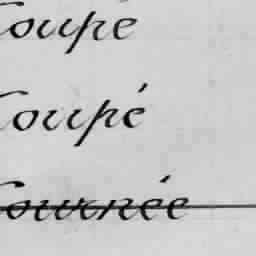 Coupé
Coupé
Tournée